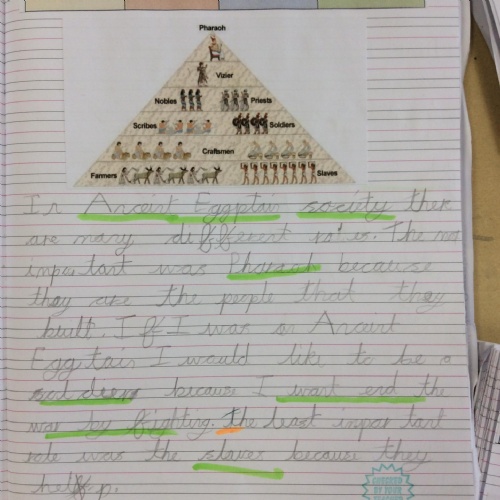 Pharaoh
Vizier
Nobles Priests
Scribes Soldiers
Craftsmen
Farmers Slaves
In Ancient Egyptian society ther
are many different roles. The mos
important was Pharaoh because
they are the people that they
built. If I was an Ancient
Egg tain I would like to be a
because I want end the
war by fighting. the least impor tant
role was the slaves because they
help.